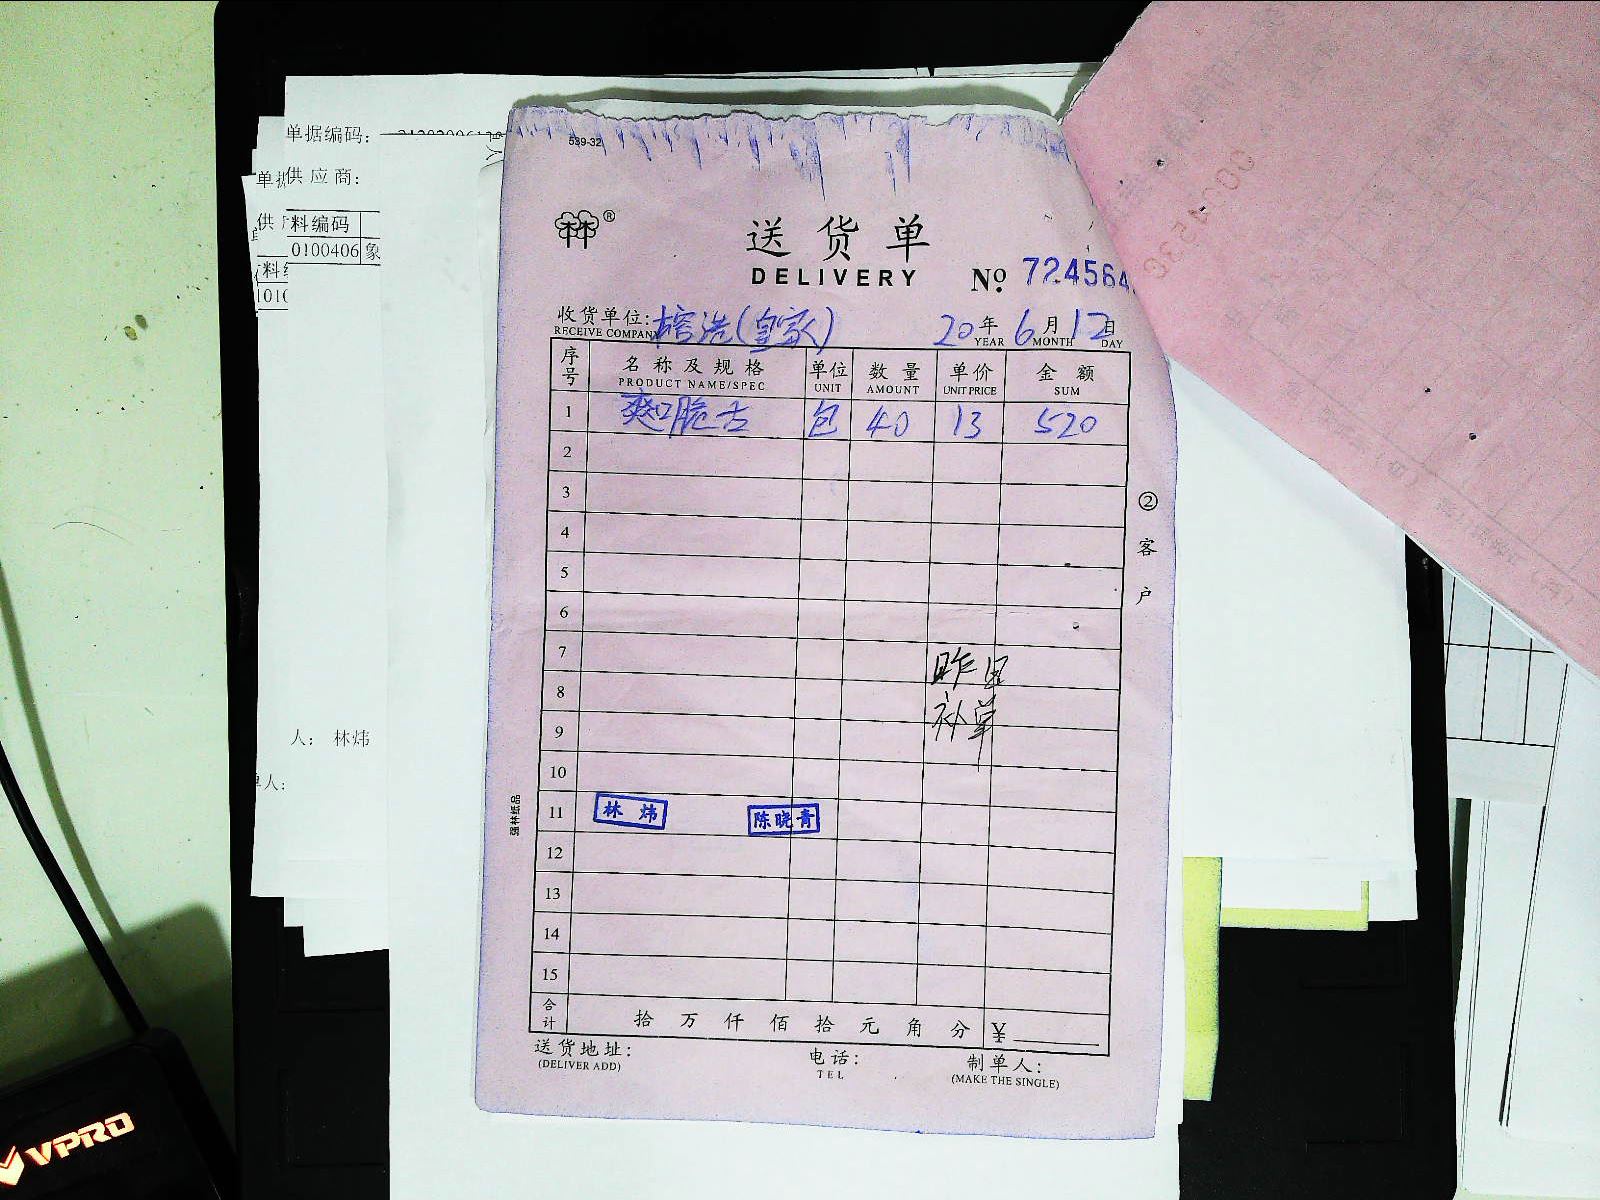 单据编码:
供应商:
料编码
0100406 象
单据
供
料
人: 林炜
单人:
539-32
林林®
送货单
DELIVERY
№ 724564
收货单位: (皇家) 20年6月12日
RECEIVE COMPANY YEAR MONTH DAY
序号 名称及规格 单位 数量 单价 金额
PRODUCT NAME/SPEC UNIT AMOUNT UNIT PRICE SUM
1 爽口脆古 包 40 13 520
2
3
4
5
6
7 昨日
8 补单
9
10
11 林炜 陈晓青
12
13
14
15
合计 拾万仟佰拾元角分 ¥
送货地址: 电话: 制单人:
(DELIVER ADD) TEL (MAKE THE SINGLE)
②客户
强林纸品
VPRO